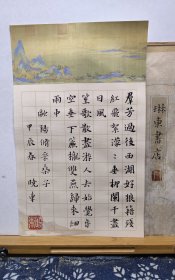 羣芳過後西湖好狼籍殘
紅飛絮濛々垂柳闌干盡
日風
笙歌散盡游人去始覺春
空垂下簾櫳雙燕歸來細
雨中
歐陽脩采桑子
甲辰春 曉東
東書店